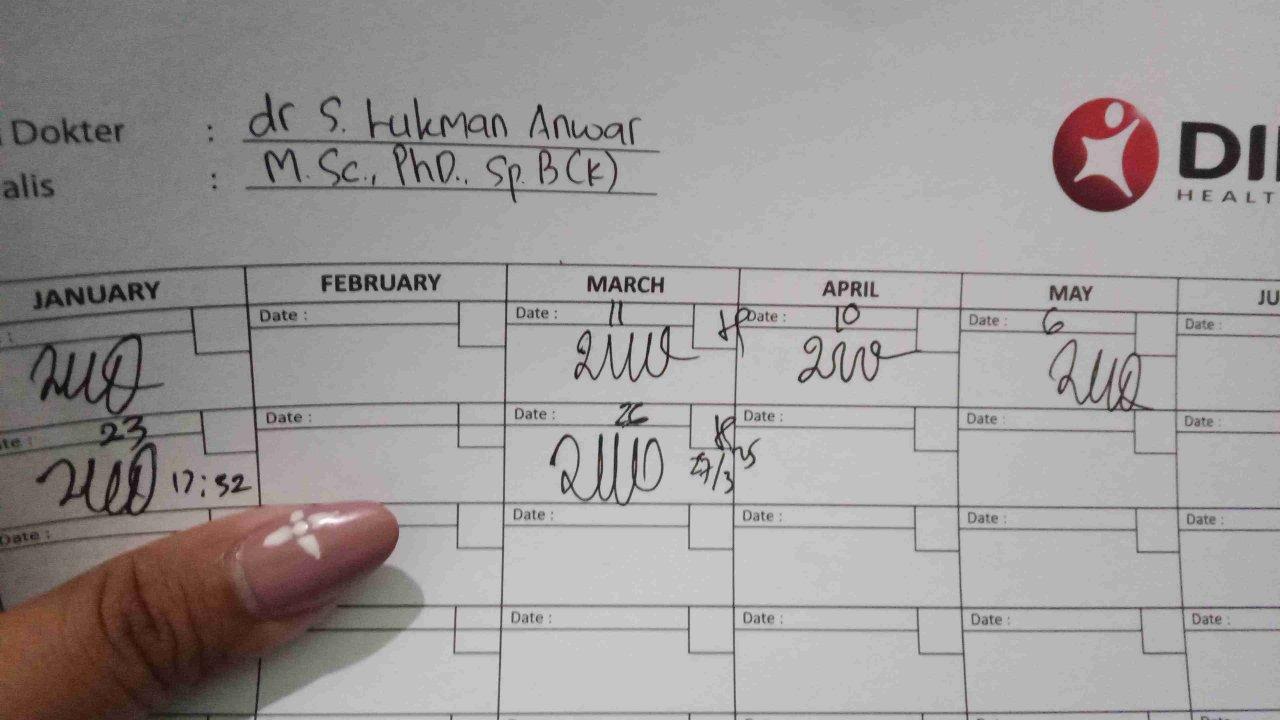 Dokter : dr S. Lukman Anwar
alis : M.Sc., PhD., Sp. B(K)
DI
HEALT
JANUARY FEBRUARY MARCH APRIL MAY JU
: Date : Date : 11 Date : 10 Date : 6 Date :
te : 23 Date : Date : 26 Date : Date : Date :
17:52 27/3
Date : Date : Date : Date : Date :
Date : Date : Date : Date :